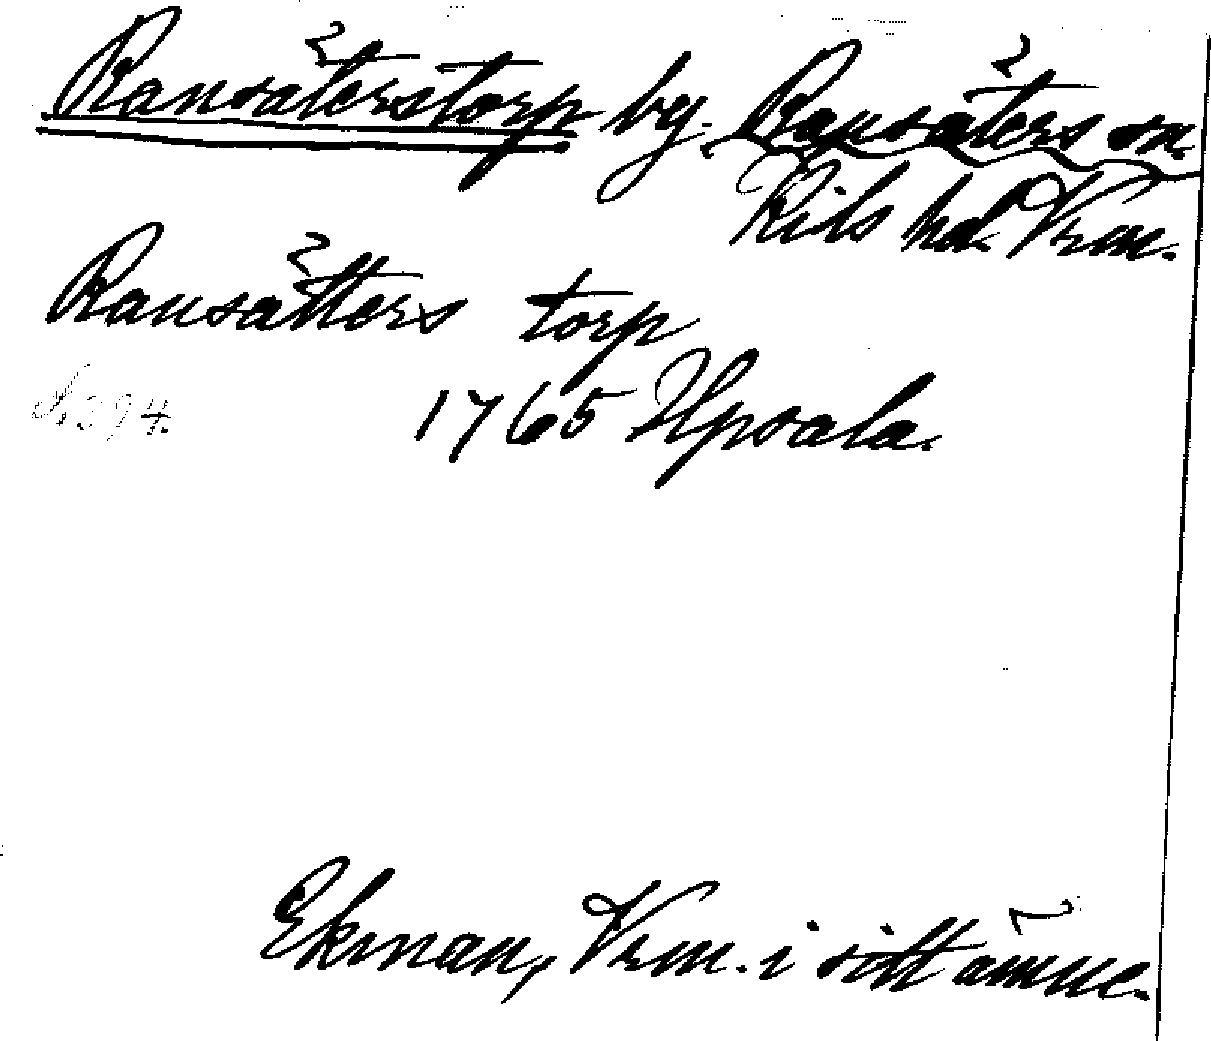 Ransäterstorp by. Ransäters sn.
Kils hd. Vrm.
Ransätters torp
N. 394.
1765 Upsala.
Ekman, Vrm. i sitt ämne.